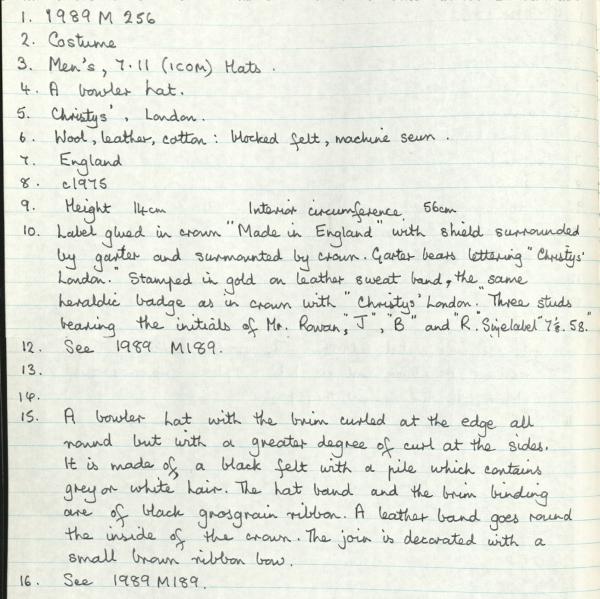 1. 1989 M 256
2. Costume
3. Men's, 7.11 (ICOM) Hats.
4. A bowler hat.
5. Christys', London.
6. Wool, leather, cotton: blocked felt, machine sewn.
7. England
8. c1975
9. Height 14cm Interior circumference 56cm
10. Label glued in crown "Made in England" with shield surrounded
by garter and surmounted by crown. Garter bears lettering "Christys'
London." Stamped in gold on leather sweat band, the same
heraldic badge as in crown with "Christys' London." Three studs
bearing the initials of Mr. Rowan, "J", "B" and "R". Size label "7⅛. 58."
12. See 1989 M189.
13.
14.
15. A bowler hat with the brim curled at the edge all
round but with a greater degree of curl at the sides.
It is made of a black felt with a pile which contains
grey or white hair. The hat band and the brim binding
are of black grosgrain ribbon. A leather band goes round
the inside of the crown. The join is decorated with a
small brown ribbon bow.
16. See 1989 M189.